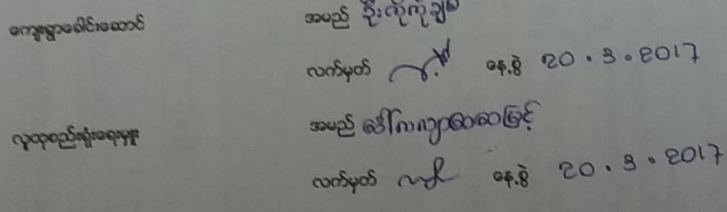 ကျေးရွာခေါင်းဆောင် အမည် ဦးကိုကို
လက်မှတ် နေ့စွဲ 20.3.2017
လူထုစည်းရုံးရေးမှူး အမည် ဒေါ်
လက်မှတ် နေ့စွဲ 20.3.2017